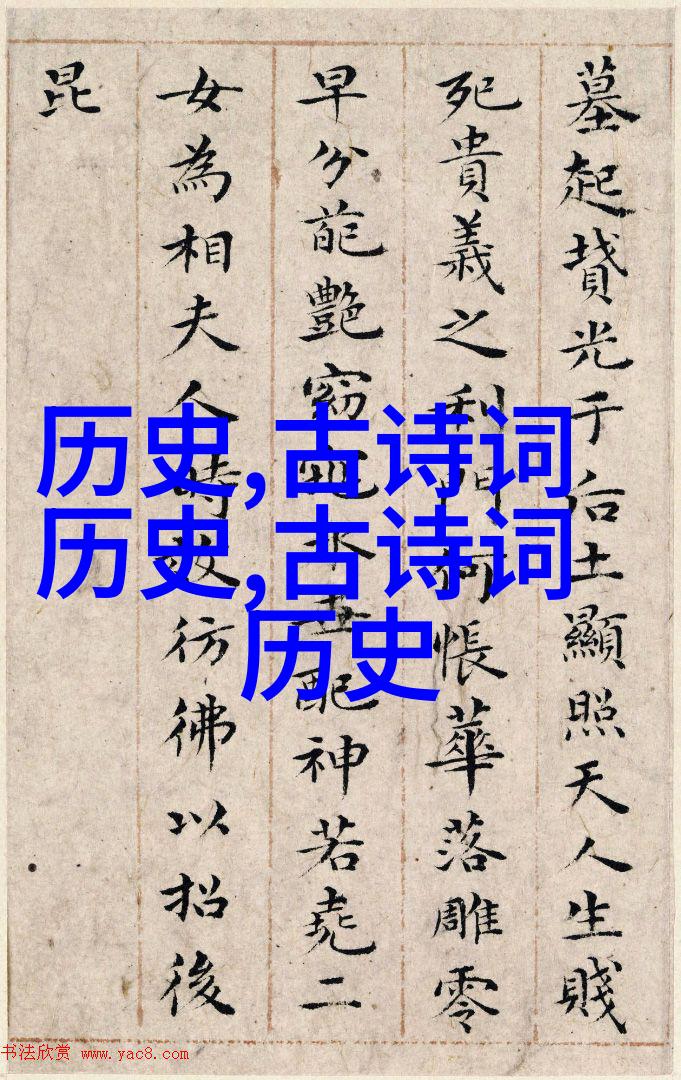 墓起墳光于后土顯照天人生賤
死貴義之利門何悵華落雕零
早分葩艷窈窕永世配神若堯二
女為相夫人時效彷彿以招後
昆
历史,古诗词
历史,古诗词
历史
书法欣赏 www.yac8.com